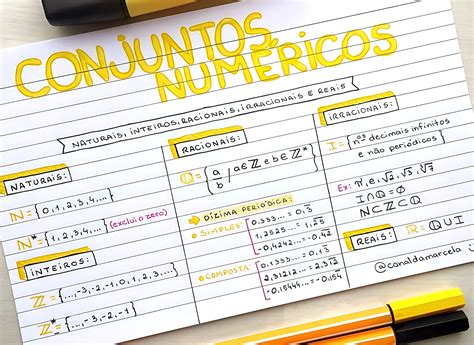 CONJUNTOS NUMÉRICOS
NATURAIS, INTEIROS, RACIONAIS, IRRACIONAIS E REAIS
NATURAIS:
ℕ = {0,1,2,3,4,...}
ℕ* = {1,2,3,4,...} (exclui o zero)
INTEIROS:
ℤ = {...,-3,-2,-1,0,1,2,3,...}
ℤ* = {...,-3,-2,-1}
RACIONAIS:
ℚ = {a/b / a∈ℤ e b∈ℤ*}
DÍZIMA PERIÓDICA:
SIMPLES:
0,333... = 0,3̅
1,2525... = 1,2̅5̅
-0,4242... = -0,4̅2̅
COMPOSTA:
0,1333... = 0,13̅
2,31212... = 2,31̅2̅
-0,15444... = -0,154̅
IRRACIONAIS:
I = {nos decimais infinitos
e não periódicos}
Ex: π, e, √2, √3, √7
I∩ℚ = ∅
ℕ⊂ℤ⊂ℚ
REAIS: ℝ = ℚ∪I
@canaldamarcela